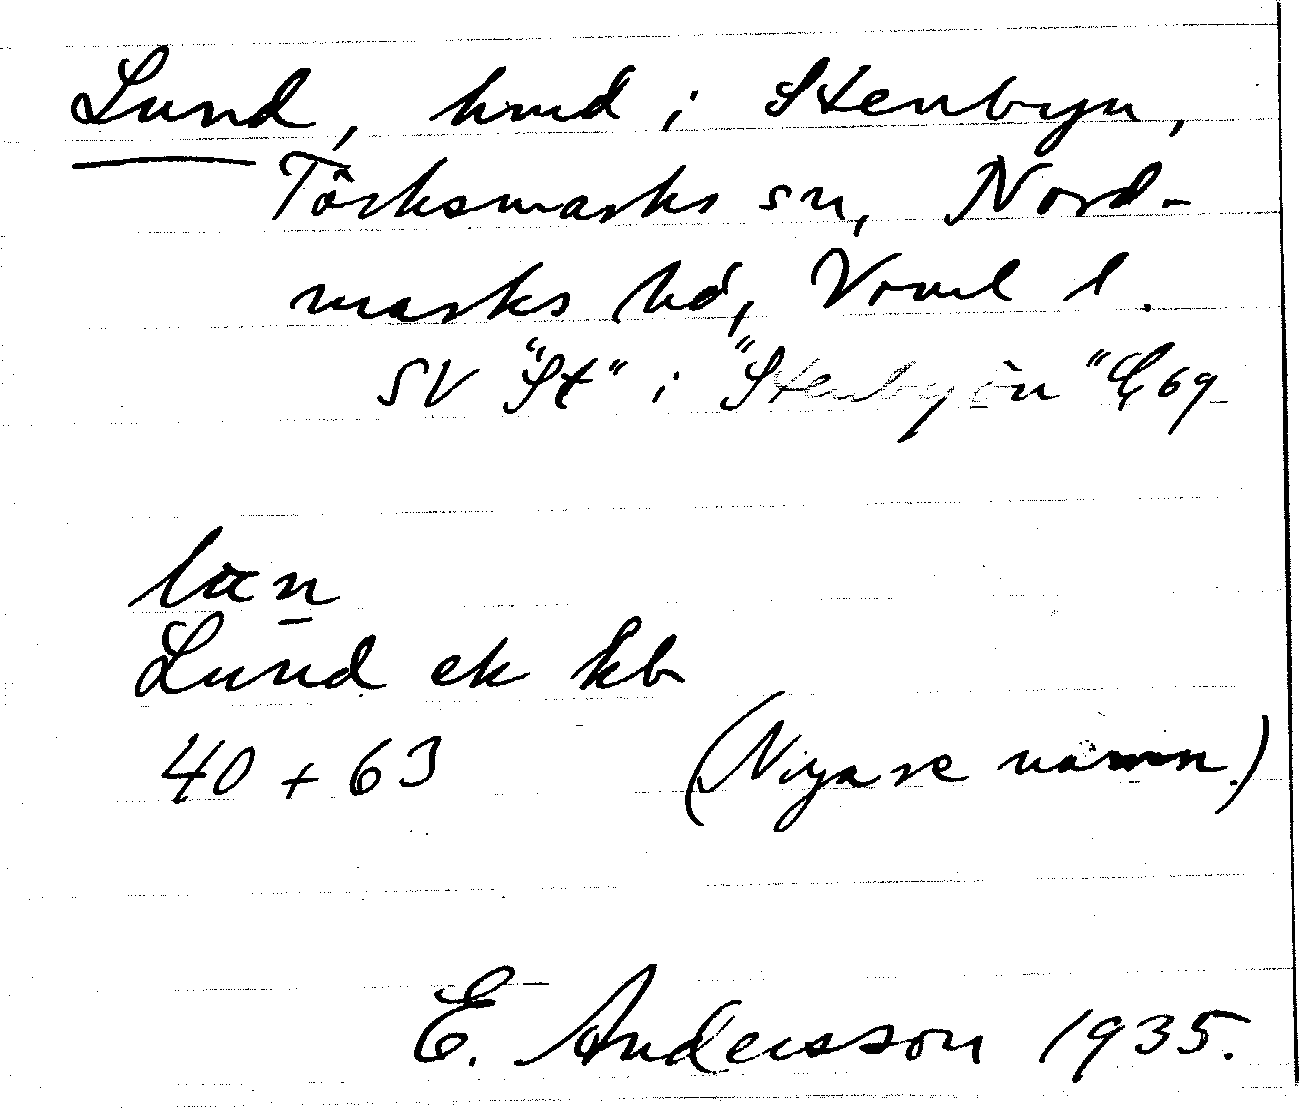 Lund, hmd i Stenbyn,
Töcksmarks sn, Nord-
marks hd, Vrml l.
SV "St" i "Stenbyån" E69
lɷn
Lund ek kb
40 + 63 (Nyare namn.)
E. Andersson 1935.